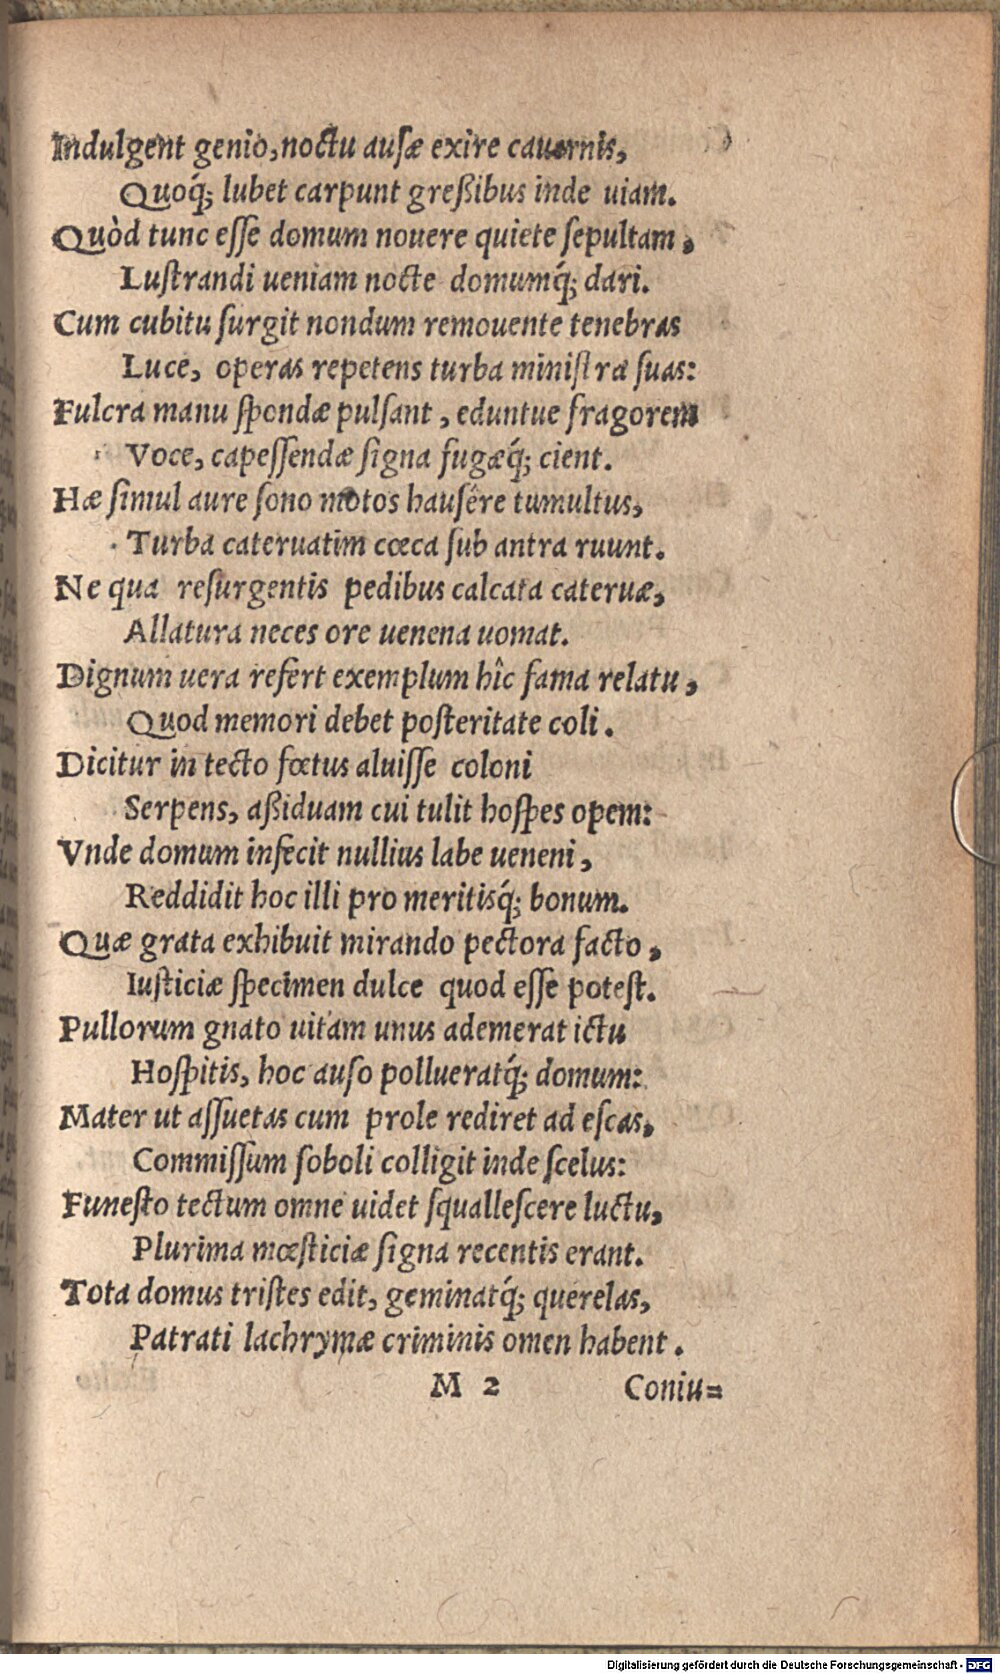 Indulgent genio, noctu ausæ exire cauernis,
Quoq́; lubet carpunt greßibus inde uiam.
Quòd tunc esse domum nouere quiete sepultam,
Lustrandi ueniam nocte domumq́; dari.
Cum cubitu surgit nondum remouente tenebras
Luce, operas repetens turba ministra suas:
Fulcra manu spondæ pulsant, eduntue fragorem
Voce, capessendæ signa fugæq́; cient.
Hæ simul aure sono motos hausêre tumultus,
Turba cateruatim cœca sub antra ruunt.
Ne qua resurgentis pedibus calcata cateruæ,
Allatura neces ore uenena uomat.
Dignum uera refert exemplum hîc fama relatu,
Quod memori debet posteritate coli.
Dicitur in tecto fœtus aluisse coloni
Serpens, aßiduam cui tulit hospes opem:
Vnde domum infecit nullius labe ueneni,
Reddidit hoc illi pro meritisq́; bonum.
Quæ grata exhibuit mirando pectora facto,
Iusticiæ specimen dulce quod esse potest.
Pullorum gnato uitam unus ademerat ictu
Hospitis, hoc auso pollueratq́; domum:
Mater ut assuetas cum prole rediret ad escas,
Commissum soboli colligit inde scelus:
Funesto tectum omne uidet squallescere luctu,
Plurima mœsticiæ signa recentis erant.
Tota domus tristes edit, geminatq́; querelas,
Patrati lachrymæ criminis omen habent.
M 2 Coniu=
Digitalisierung gefördert durch die Deutsche Forschungsgemeinschaft - DFG